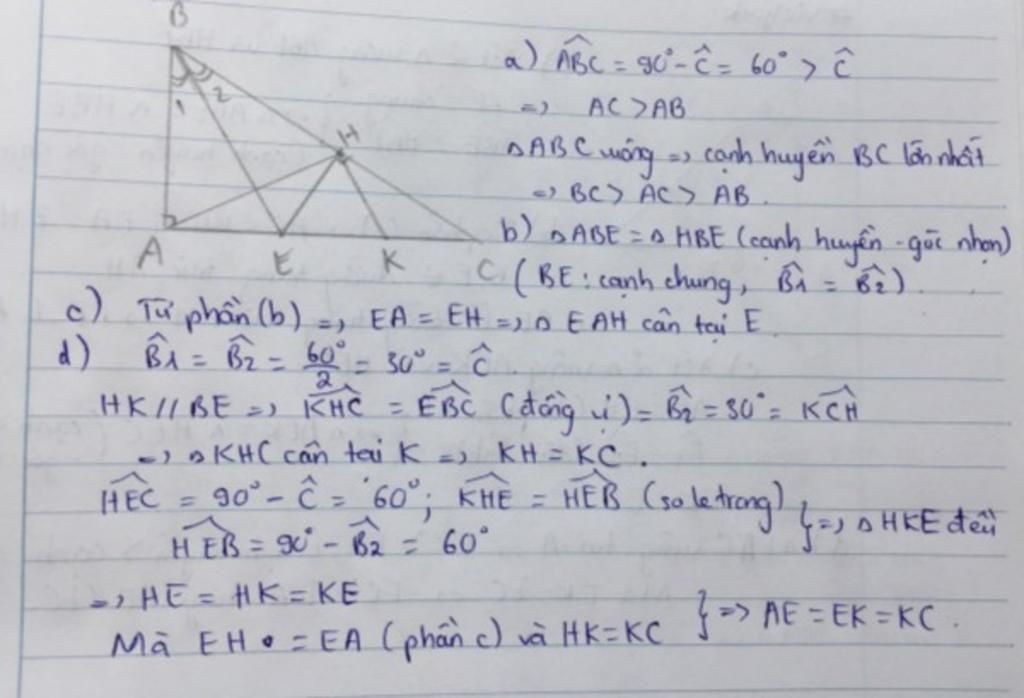 B
1 2
H
A E K C
a) ABC = 90° - Ĉ = 60° > Ĉ
=> AC > AB
△ABC vuông => cạnh huyền BC lớn nhất
=> BC > AC > AB.
b) △ABE = △HBE (cạnh huyền - góc nhọn)
(BE: cạnh chung, B̂1 = B̂2).
c) Từ phần (b) => EA = EH => △EAH cân tại E
d) B̂1 = B̂2 = 60°/2 = 30° = Ĉ
HK // BE => KHC = EBC (đồng vị) = B̂2 = 30° = KCH
=> △KHC cân tại K => KH = KC.
HEC = 90° - Ĉ = 60°; KHE = HEB (so le trong) } => △HKE đều
HEB = 90° - B̂2 = 60°
=> HE = HK = KE
Mà EH = EA (phần c) và HK = KC } => AE = EK = KC.